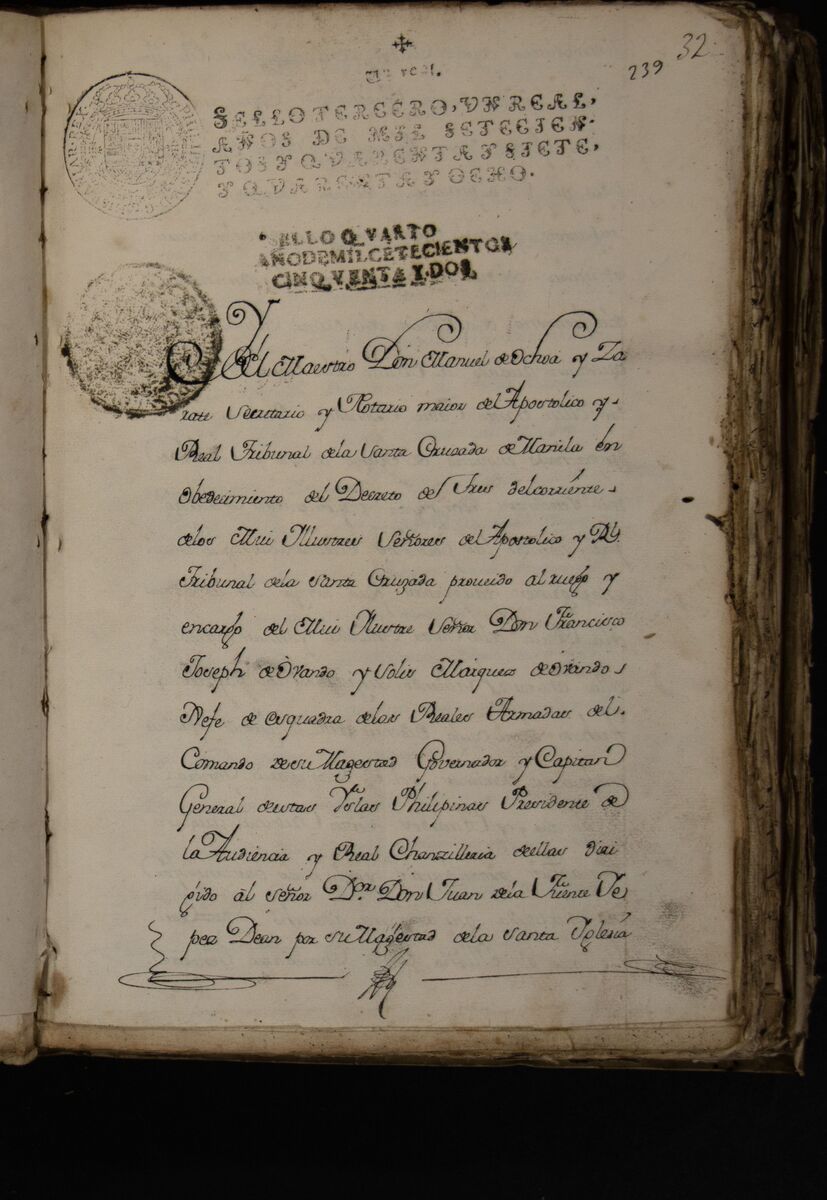 32
239
Un real.
SELLO TERCERO, VN REAL,
AÑOS DE MIL SETECIEN-
TOS Y QVARENTA Y SIETE,
Y QVARENTA Y OCHO.
SELLO QVARTO
AÑO DE MIL CETECIENTOS
CINQVENTA I DOS
El Maestro Don Manuel de Ochoa y Za
rate Secretario y Notario maior del Apostolico y
Real Tribunal de la Santa Cruzada de Manila en
obedecimiento del Decreto de Tres del corriente
de los Mui Illustres Señores del Apostolico y Rl.
Tribunal de la Santa Cruzada proueido al ruego y
encargo del Mui Illustre Señor Don Francisco
Joseph de Ovando y Solis Marques de Ovando
Xefe de esquadra de las Reales Armadas del
Comando de su Magestad Governador y Capitan
General de estas Yslas Philipinas Presidente de
la Audiencia y Real Chanzilleria de ellas diri
gido al señor Dor. Don Juan de la Fuente Ye
pez Dean por su Magestad de la Santa Yglesia